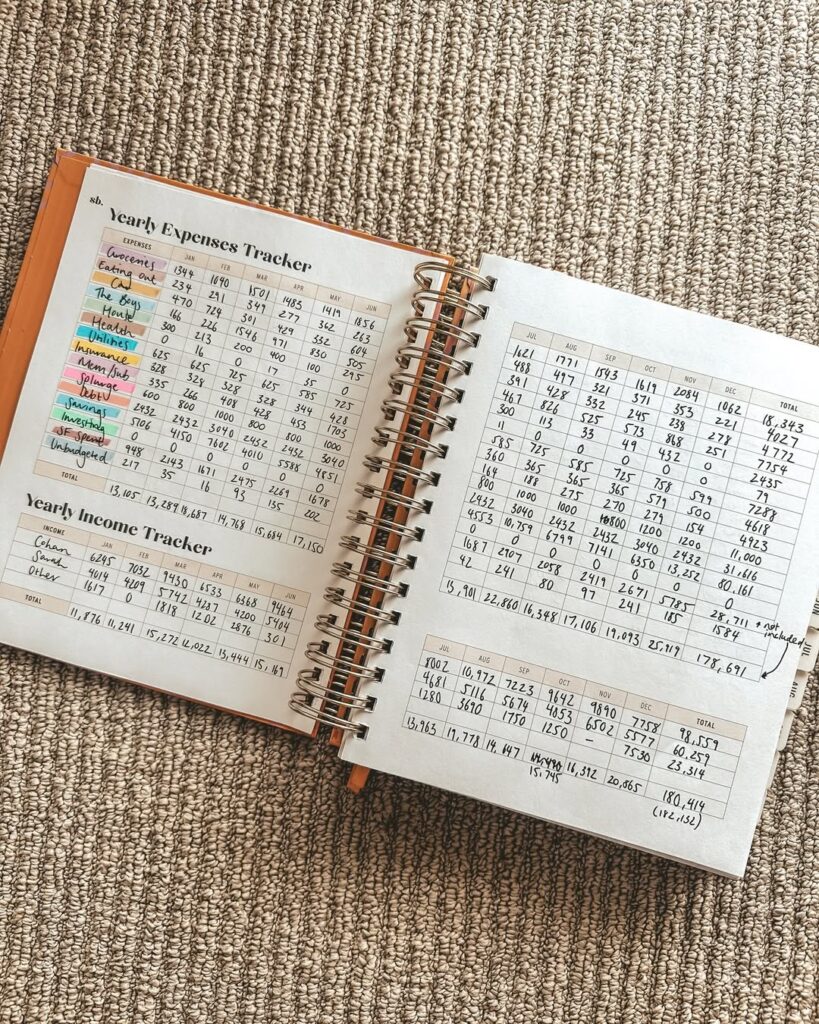 sb. Yearly Expenses Tracker
EXPENSES JAN FEB MAR APR MAY JUN
Groceries 1344 1040 1501 1483 1419 1856
Eating out 234 291 349 277 362 263
Car 470 724 301 429 332 604
The Boys 166 226 1546 971 830 505
House 300 213 200 400 100 295
Health 0 16 0 17 35 0
Utilities 625 625 725 625 585 725
Insurance 328 328 328 328 344 428
Mem/Sub 335 266 408 428 453 1705
Splurge 600 800 1000 800 800 1000
Debt 2432 2432 3040 2432 2432 3040
Savings 5706 4150 7602 4010 5588 4851
Investing 0
SF Spent 948 2143 1671 2475 2269 1678
Unbudgeted 217 35 16 93 135 202
TOTAL 13,105 13,289 18,687 14,768 15,684 17,150
Yearly Income Tracker
INCOME JAN FEB MAR APR MAY JUN
Cohan 6245 7032 9430 6533 6368 9464
Sarah 4014 4209 5742 4287 4200 5404
Other 1617 0 1818 1202 2876 301
TOTAL 11,876 11,241 15,272 12,022 13,444 15,169
JUL AUG SEP OCT NOV DEC TOTAL
1621 1771 1543 1619 2084 1062 18,343
488 497 321 371 353 221 4027
391 428 332 245 238 278 4772
467 826 525 573 868 251 7754
300 113 33 49 432 0 2435
11 0 0 0 0 0 79
585 725 585 725 758 599 7288
360 365 365 365 579 500 4618
164 188 275 270 279 154 4923
800 1000 1000 800 1200 1200 11,000
2432 3040 2432 2432 3040 2432 31,616
4553 10,759 6799 7141 6350 13,252 80,161
0 0 0 0 0 0 0
1687 2907 2058 2419 2671 5785 28,711 * not included
42 241 80 97 241 185 1584
13,901 22,860 16,348 17,106 19,093 25,919 178,691
JUL AUG SEP OCT NOV DEC TOTAL
8002 10,972 7223 9642 9890 7758 98,559
4681 5116 5674 4853 6502 5577 60,259
1280 3690 1750 1250 – 7530 23,314
13,963 19,778 14,647 15,745 16,392 20,865 180,414
(182,132)